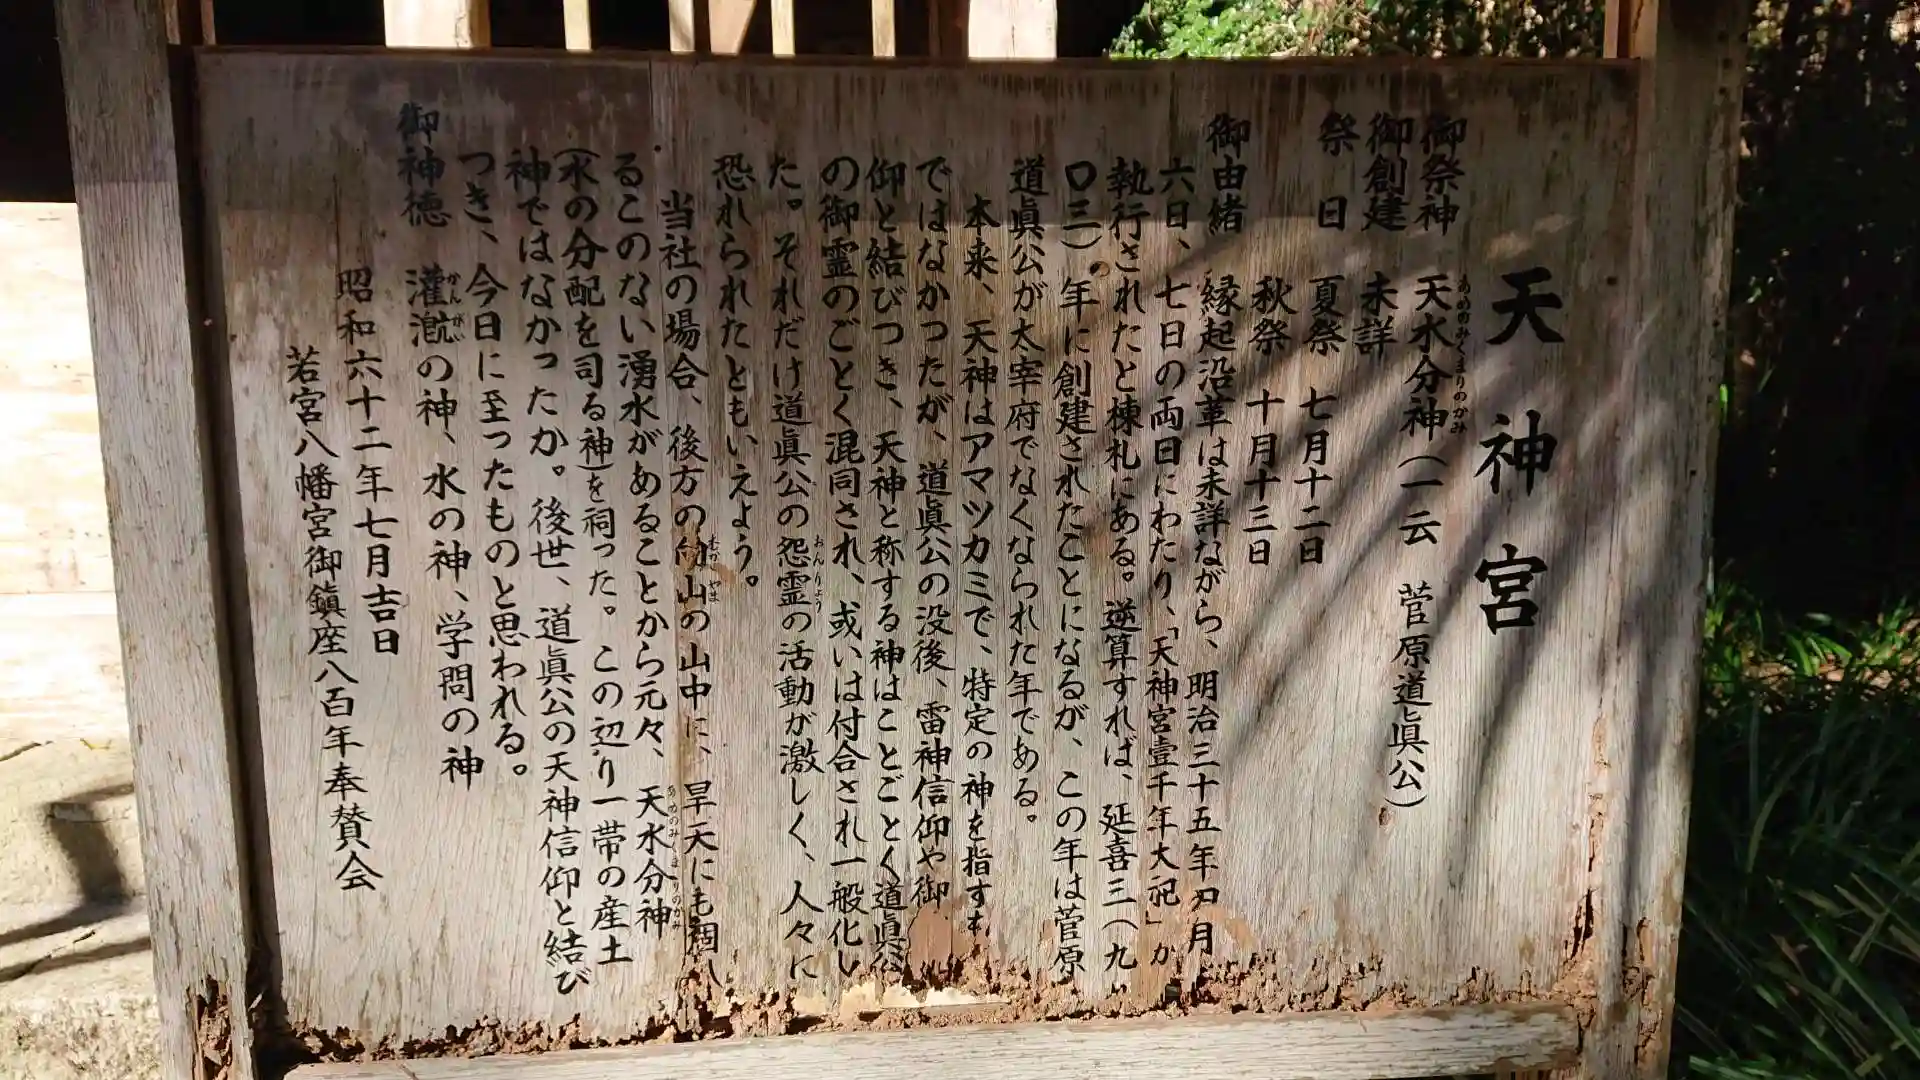 天神宮
御祭神 天水分神(一云 菅原道眞公)
あめのみくまりのかみ
御創建 未詳
祭日 夏祭 七月十二日
秋祭 十月十三日
御由緒 縁起沿革は未詳ながら、明治三十五年 月
六日、七日の両日にわたり、「天神宮壹千年大祀」が
執行されたと棟札にある。逆算すれば、延喜三(九
〇三)の年に創建されたことになるが、この年は菅原
道眞公が太宰府でなくなられた年である。
本来、天神はアマツカミで、特定の神を指す
ではなかつたが、道眞公の没後、雷神信仰や御
仰と結びつき、天神と称する神はことごとく道眞公
の御霊のごとく混同され、或いは付合され一般化し
た。それだけ道眞公の怨霊の活動が激しく、人々に
おんりょう
恐れられたともいえよう。
当社の場合、後方の 山の山中に、旱天にも涸
るこのない湧水があることから元々、天水分神
あめのみくまりのかみ
(水の分配を司る神)を祠った。この辺り一帯の産土
神ではなかったか。後世、道眞公の天神信仰と結び
つき、今日に至ったものと思われる。
御神徳 灌漑の神、水の神、学問の神
かんがい
昭和六十二年七月吉日
若宮八幡宮御鎮座八百年奉賛会